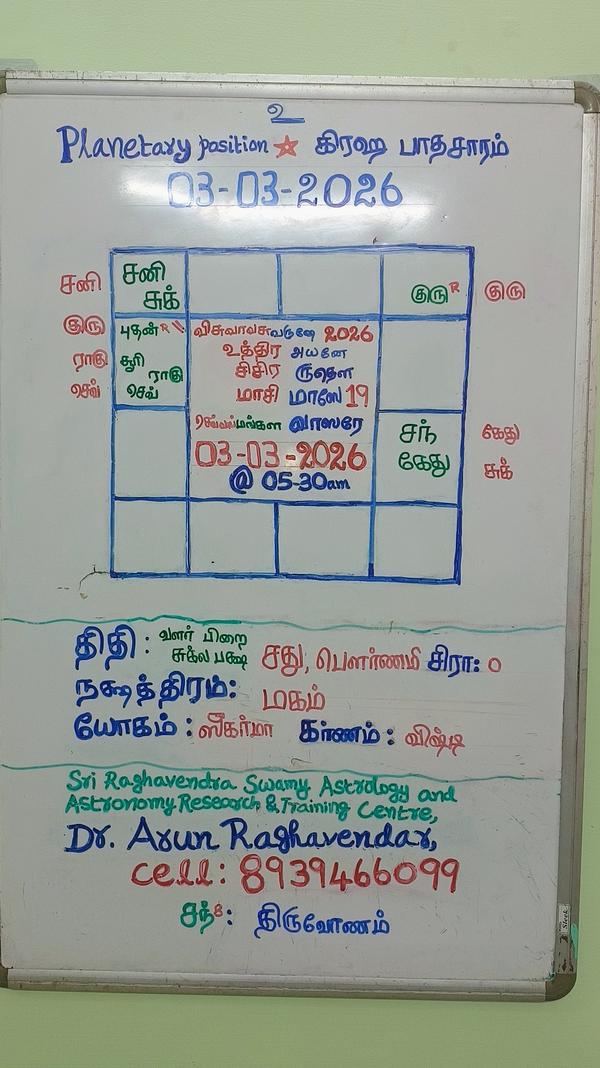 உ
Planetary position கிரஹ பாதசாரம்
03-03-2026
சனி
குரு
ராகு
செவ்
சனி
சுக்
குரு R
குரு
புதன் R
சூரி
ராகு
செவ்
விசுவாவசுவருஷே 2026
உத்திர அயனே
சிசிர ருதௌ
மாசி மாஸே 19
செவ்வல்மங்கள வாஸரே
03-03-2026
@ 05-30am
சந்
கேது
கேது
சுக்
திதி : வளர் பிறை
சுக்ல பக்ஷ
சது, பௌர்ணமி சிரா: 0
நக்ஷத்திரம்: மகம்
யோகம் : ஸீகர்மா கர்ணம் : விஷ்டி
Sri Raghavendra Swamy Astrology and
Astronomy Research & Training Centre,
Dr. Arun Raghavendar,
Cell: 8939466099
சந்8: திருவோணம்